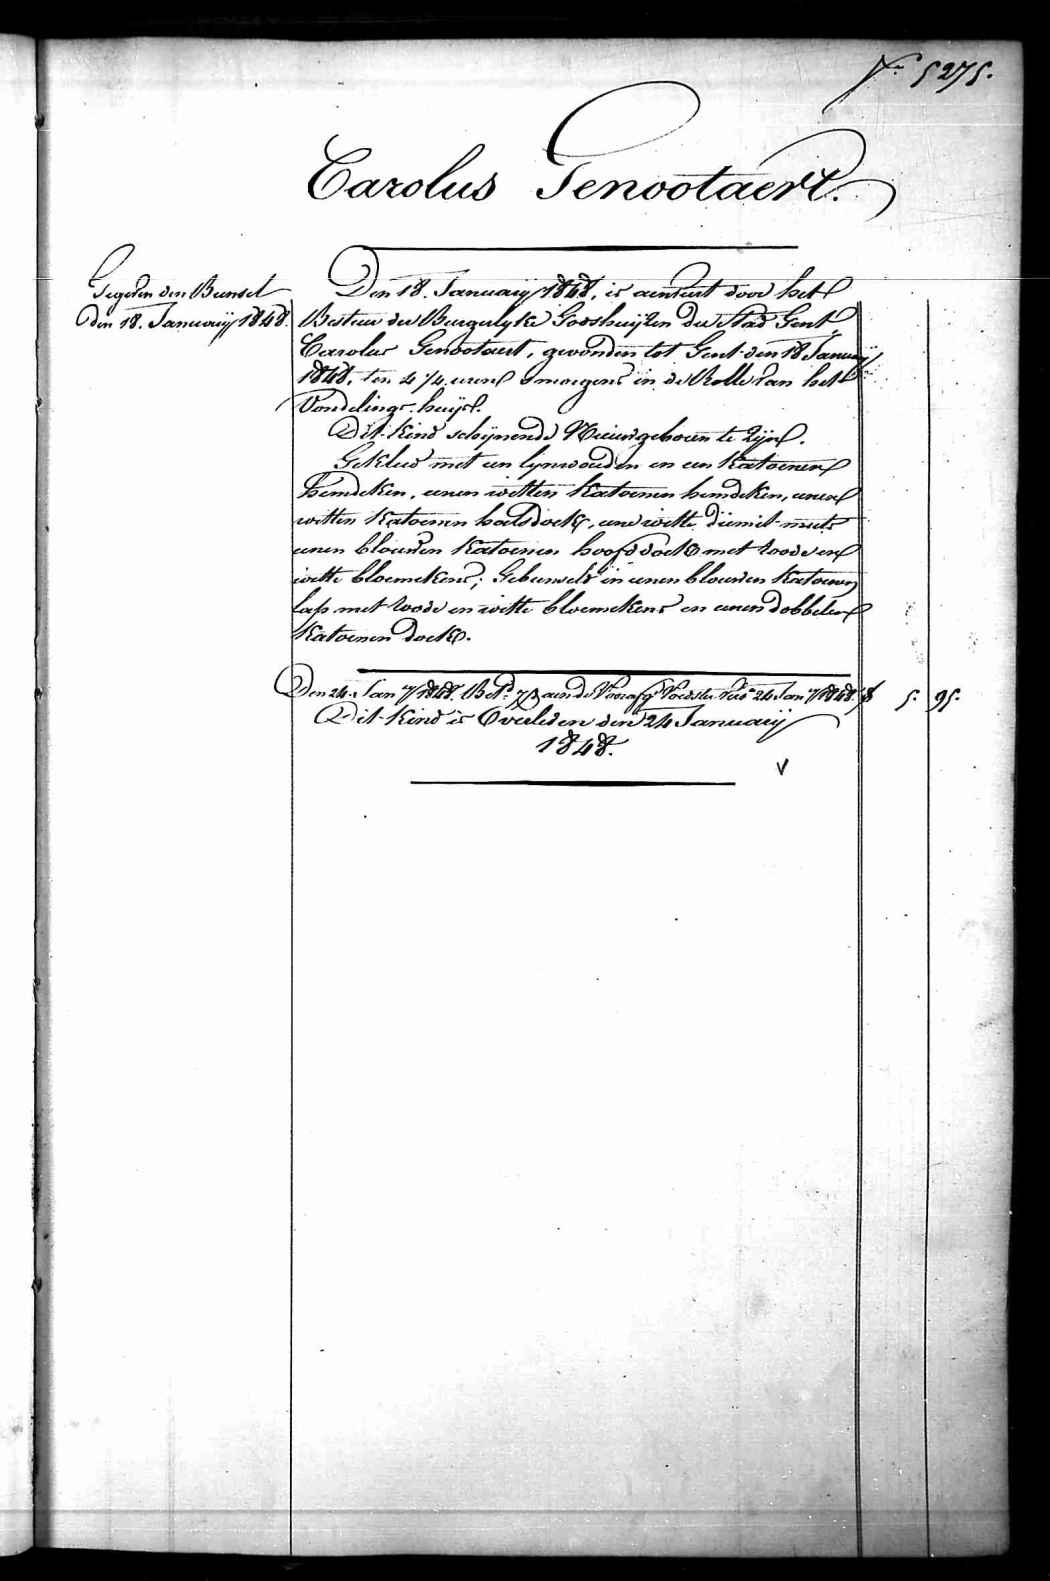 N.º 5275.
Carolus Genootaert.
Gegeven den Bunsel
den 18. Januarij 1848.
Den 18. Januarij 1848, is aenveirt door het
Bestuer der Burgerlyke Godshuijzen der Stad Gent
Carolus Genootaert, gevonden tot Gent den 18 Januarij
1848, ten 4 1/4 uren smorgens in de Rolle van het
Vondelings-huijs.
Dit Kind schijnende Nieuwgeboren te Zijn.
Gekleed met een lijnwouden en een Katoenen
hemdeken, eenen witten Katoenen hemdeken, eenen
witten Katoenen halsdoek, eene witte diemit muts
eenen blouwen Katoenen hoofddoek met roode en
witte bloemekens; Gebunseld in eenen blouwen Katoenen
lap met roode en witte bloemekens en eenen dobbelen
Katoenen doek.
Den 24. Jan 1848. Bet. aen de Voedster 24 Jan 1848. 5. 95.
Dit Kind is Overleden den 24 Januarij
1848.